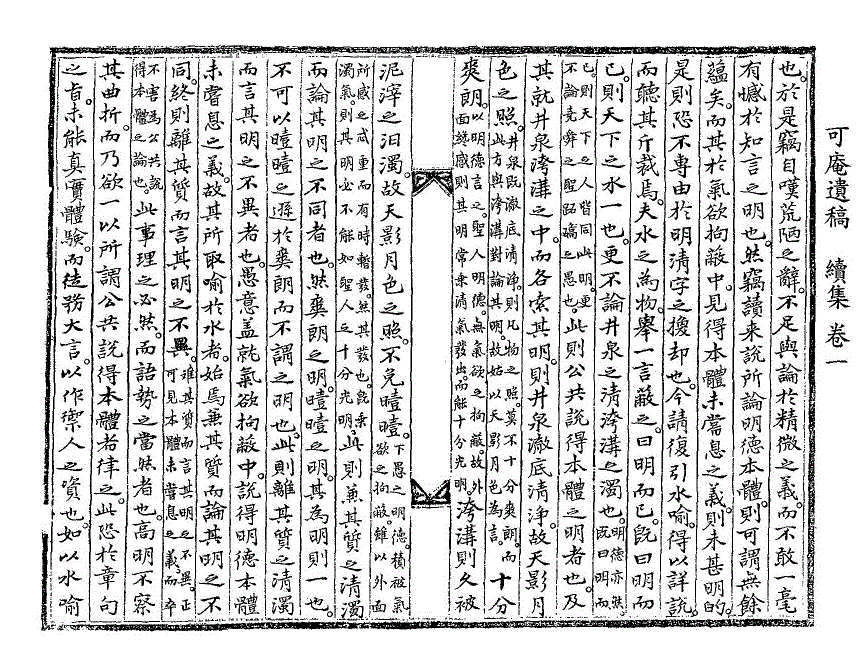 可庵遺稿 續集 卷一
也。於是竊自嘆荒陋之辭。不足與論於精微之義。而不敢一毫
有憾於知言之明也。然竊讀來說所論明德本體。則可謂無餘
蘊矣。而其於氣欲拘蔽中。見得本體未嘗息之義。則未甚明的。
是則恐不專由於明淸字之換却也。今請復引水喩。得以詳說。
而聽其斤裁焉。夫水之爲物。擧一言蔽之。曰明而已。旣曰明而
已。則天下之水一也。更不論井泉之淸洿溝之濁也。明德亦然。旣曰明而
已。則天下之人皆同此明。更不論堯舜之聖跖蹻之愚也。此則公共說得本體之明者也。及
其就井泉洿溝之中。而各索其明。則井泉澈底淸淨。故天影月
色之照。井泉旣澈底淸淨。則凡物之照。莫不十分爽朗。而此方與洿溝對論其明。故姑以天影月色爲言。十分
爽朗。以明德言之。聖人明德。無氣欲之拘蔽。故外面纔感。則其明常乘淸氣發出。而能十分光明。洿溝則久被
泥滓之汩濁。故天影月色之照。不免曀曀。下愚之明德。積被氣欲之拘蔽。雖以外面
所感之忒重而有時暫發。然其發也。旣乘濁氣。則其明必不能如聖人之十分光明。此則兼其質之淸濁
而論其明之不同者也。然爽朗之明。曀曀之明。其爲明則一也。
不可以曀曀之遜於爽朗而不謂之明也。此則離其質之淸濁
而言其明之不異者也。愚意盖就氣欲拘蔽中。說得明德本體
未嘗息之義。故其所取喩於水者。始焉兼其質而論其明之不
同。終則離其質而言其明之不異。離其質而言其明之不異。正可見本體未嘗息之義。而卒
不害爲公共說得本體之論也。此事理之必然。而語勢之當然者也。高明不察
其曲折。而乃欲一以所謂公共說得本體者律之。此恐於章句
之旨。未能眞實體驗。而徒務大言。以作禦人之資也。如以水喩